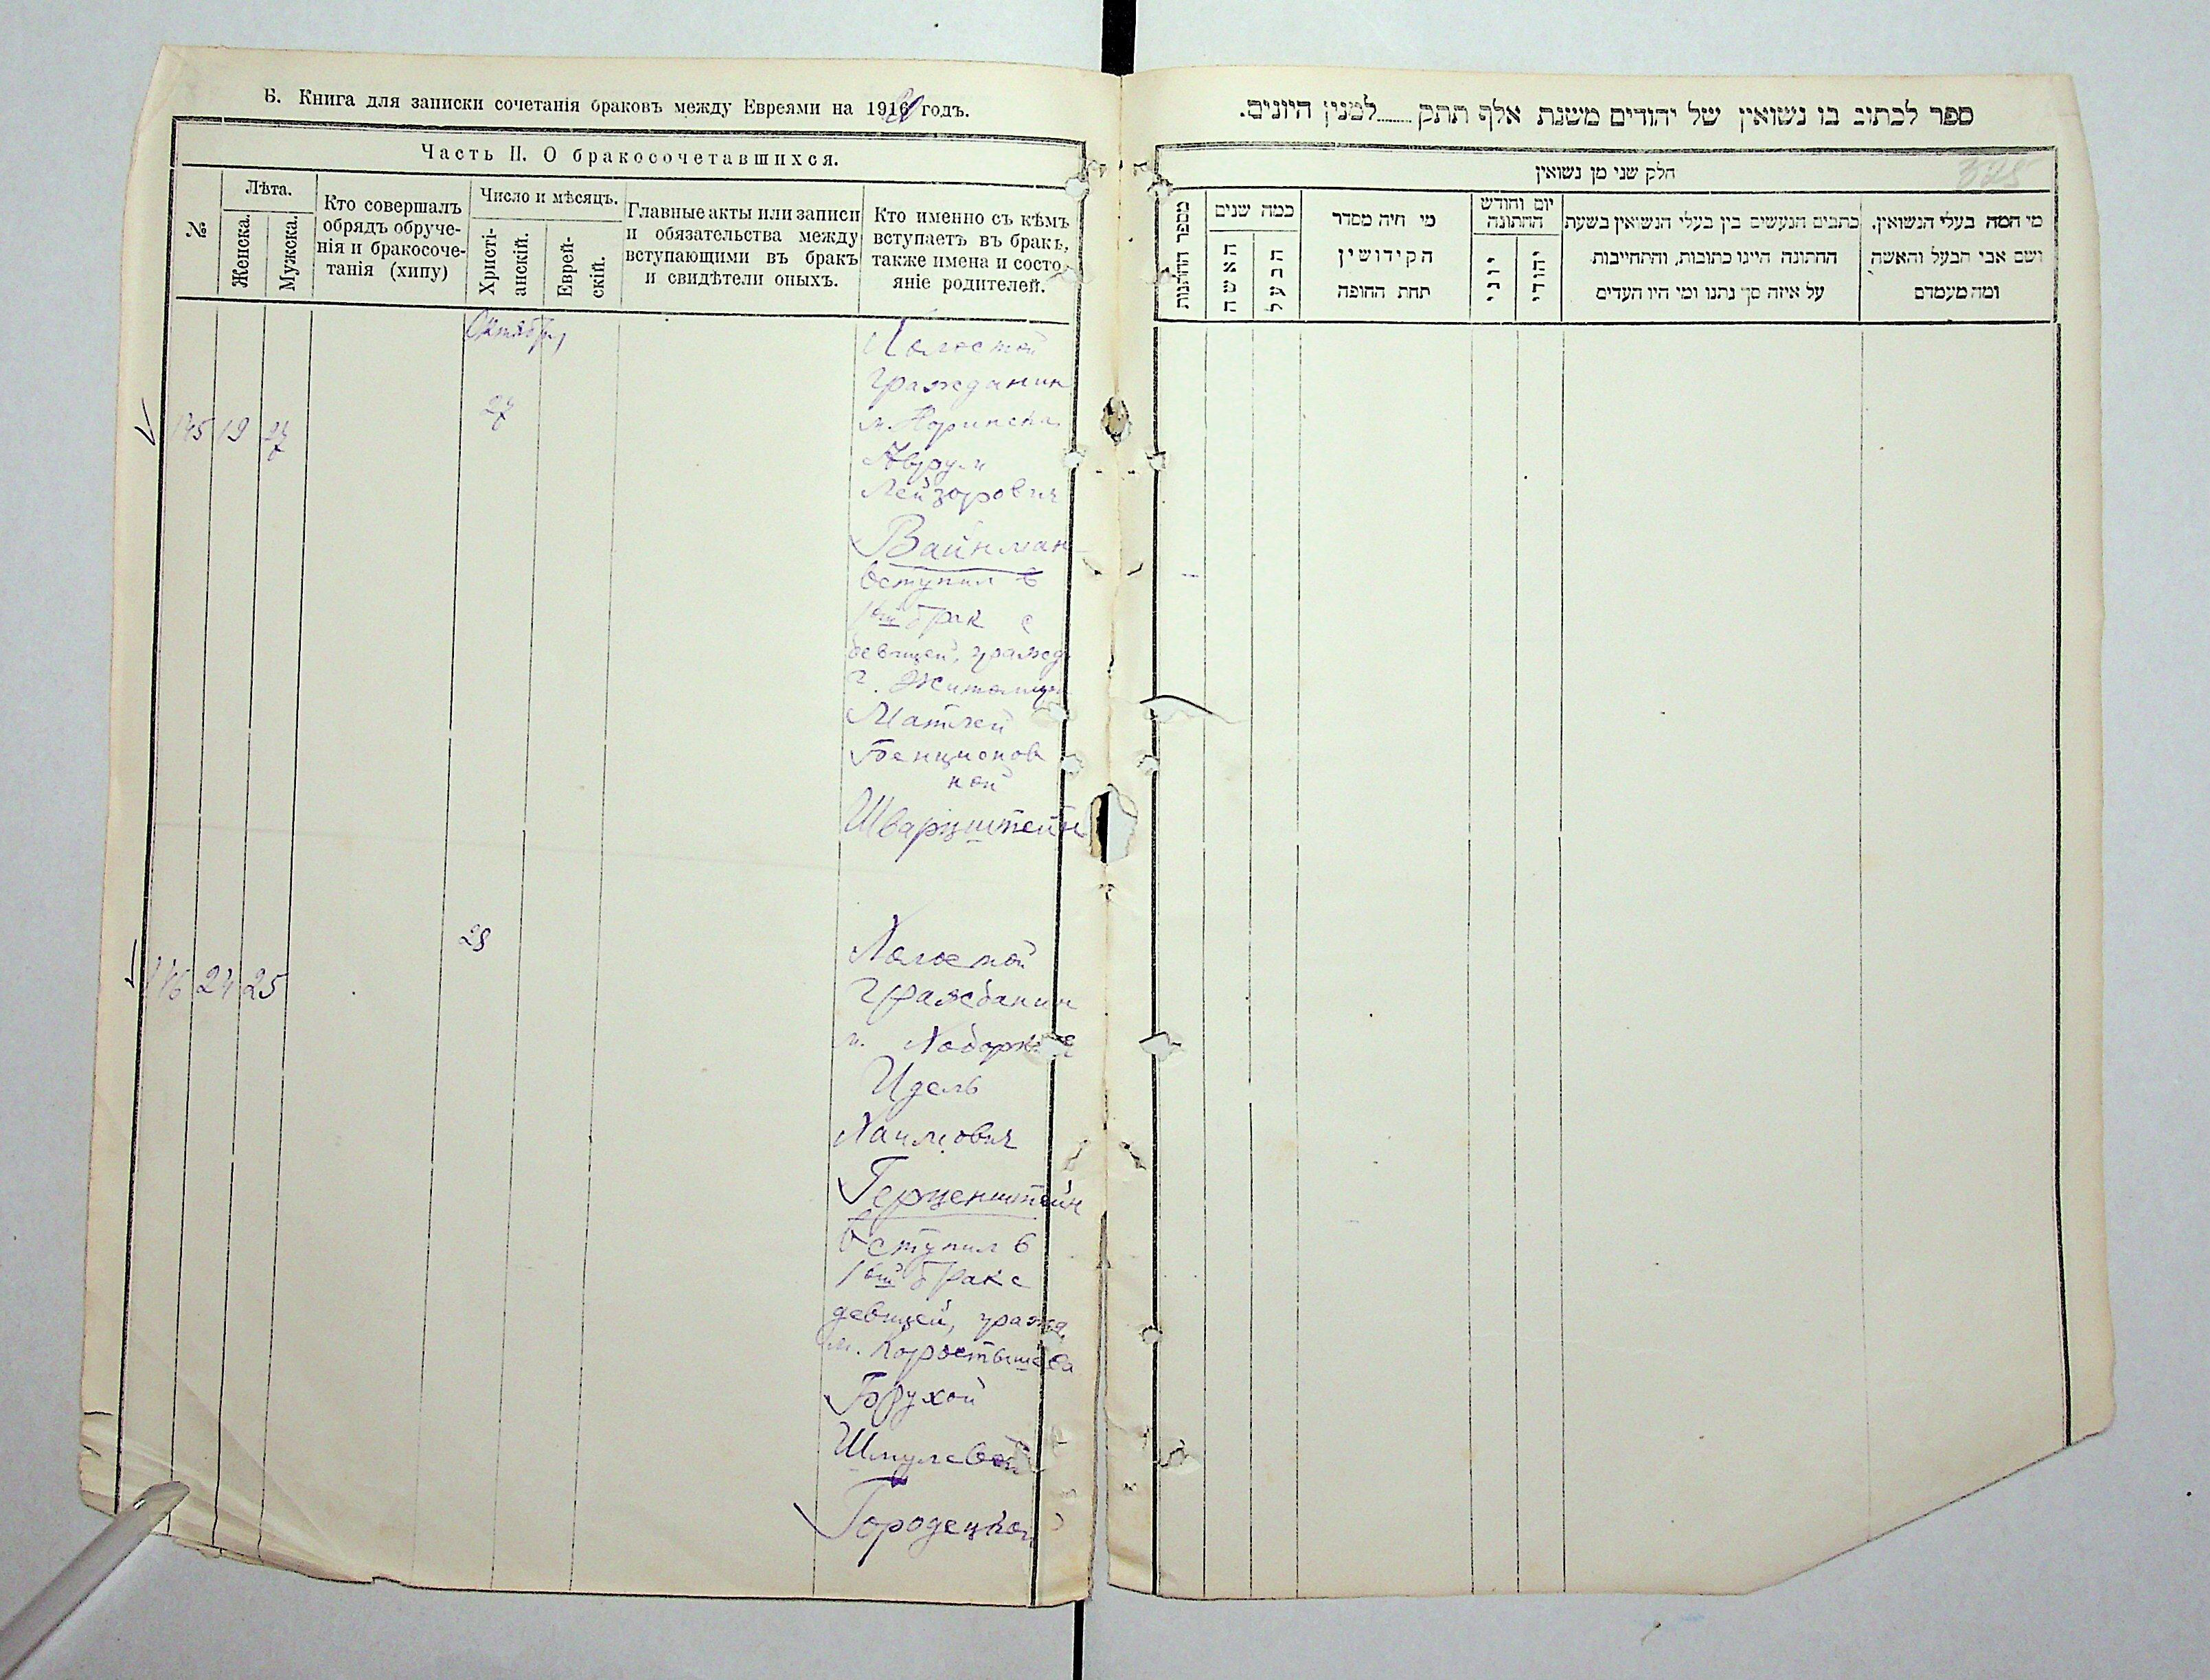 Б. Книга для записки сочетанія браковъ между Евреями на 1920 годъ.
Часть II. О бракосочетавшихся.
№
Лѣта.
Женска.
Мужска.
Кто совершалъ
обрядъ обруче-
нія и бракосоче-
танія (хипу)
Число и мѣсяцъ.
Христі-
анскій.
Еврей-
скій.
Главные акты или записи
и обязательства между
вступающими въ бракъ
и свидѣтели оныхъ.
Кто именно съ кѣмъ
вступаетъ въ бракъ,
также имена и состо-
яніе родителей.
Октябрь
145 19 27
27
Холостой
Гражданин
м. Норинска
Аврум
Лейзорович
Вайнман
вступил в
1ый брак с
девицей, гражд.
г. Житомира
Матлей
Бенционов
ной
Шварцштейн
146 24 25
28
Холостой
Гражданин
м. Ходорков
Идель
Хаимович
Герценштейн
вступил в
1ый брак с
девицей, гражд.
м. Коростышева
Брухой
Шмулевой
Городецкой
ספר לכתוב בו נשואין של יהודים משנת אלף תתק........למנין היונים.
חלק שני מן נשואין
מספר החתונות
כמה שנים
האשה
הבעל
מי היה מסדר
הקידושין
תחת החופה
יום וחודש
החתונה
יוני
יהודי
כתבים הנעשים בין בעלי הנשואין בשעת
החתונה היינו כתובות, והתחייבות
על איזה סך נתנו ומי היו העדים
מי המה בעלי הנשואין,
ושם אבי הבעל והאשה
ומה מעמדם